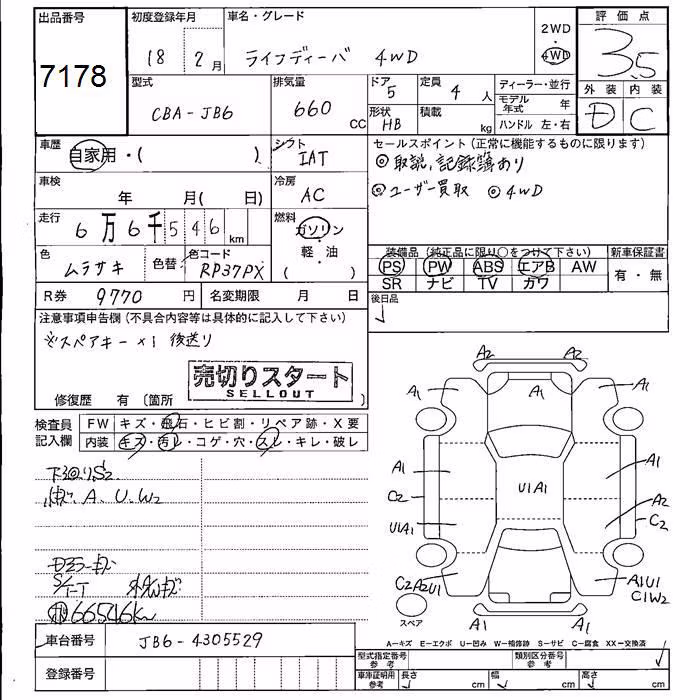 出品番号
7178
初度登録年月
18 2月
車名・グレード
ライフディーバ 4WD
2WD
・
4WD
評価点
3.5
型式
CBA-JB6
排気量
660 CC
ドア
5
定員
4人
形状
HB
積載
kg
ディーラー・並行
モデル年式 年
ハンドル 左・右
外装 内装
D C
車歴
自家用・( )
シフト
IAT
セールスポイント(正常に機能するものに限ります)
◎取説、記録簿あり
◎ユーザー買取 ◎4WD
車検
年 月( 日)
冷房
AC
走行
6万6千546km
燃料
ガソリン
・
軽・油
( )
色
ムラサキ
色替
色コード
RP37PX
装備品(純正品に限り○をつけて下さい)
PS PW ABS エアB AW
SR ナビ TV カワ
新車保証書
有・無
R券 9770円
名変期限 月 日
後日品
注意事項申告欄(不具合内容等は具体的に記入して下さい)
※スペアキー×1 後送り
売切りスタート
SELLOUT
修復歴 有〔箇所 〕
検査員記入欄
FW キズ・飛石・ヒビ割・リペア跡・X要
内装 キズ・汚レ・コゲ・穴・スレ・キレ・破レ
下廻りS2
A、U、W2
66546km
A2 A2
A1 A1 A1
A1 A1
C2 U1A1 A2
C2
U1A1
C2A2U1 A1U1
C1W2
スペア
A1 A1
A-キズ E-エクボ U-凹み W-補修跡 S-サビ C-腐食 XX-交換済
車台番号 JB6-4305529
登録番号
型式指定番号
参考
類別区分番号
参考
車庫証明用
参考
長さ cm 幅 cm 高さ cm